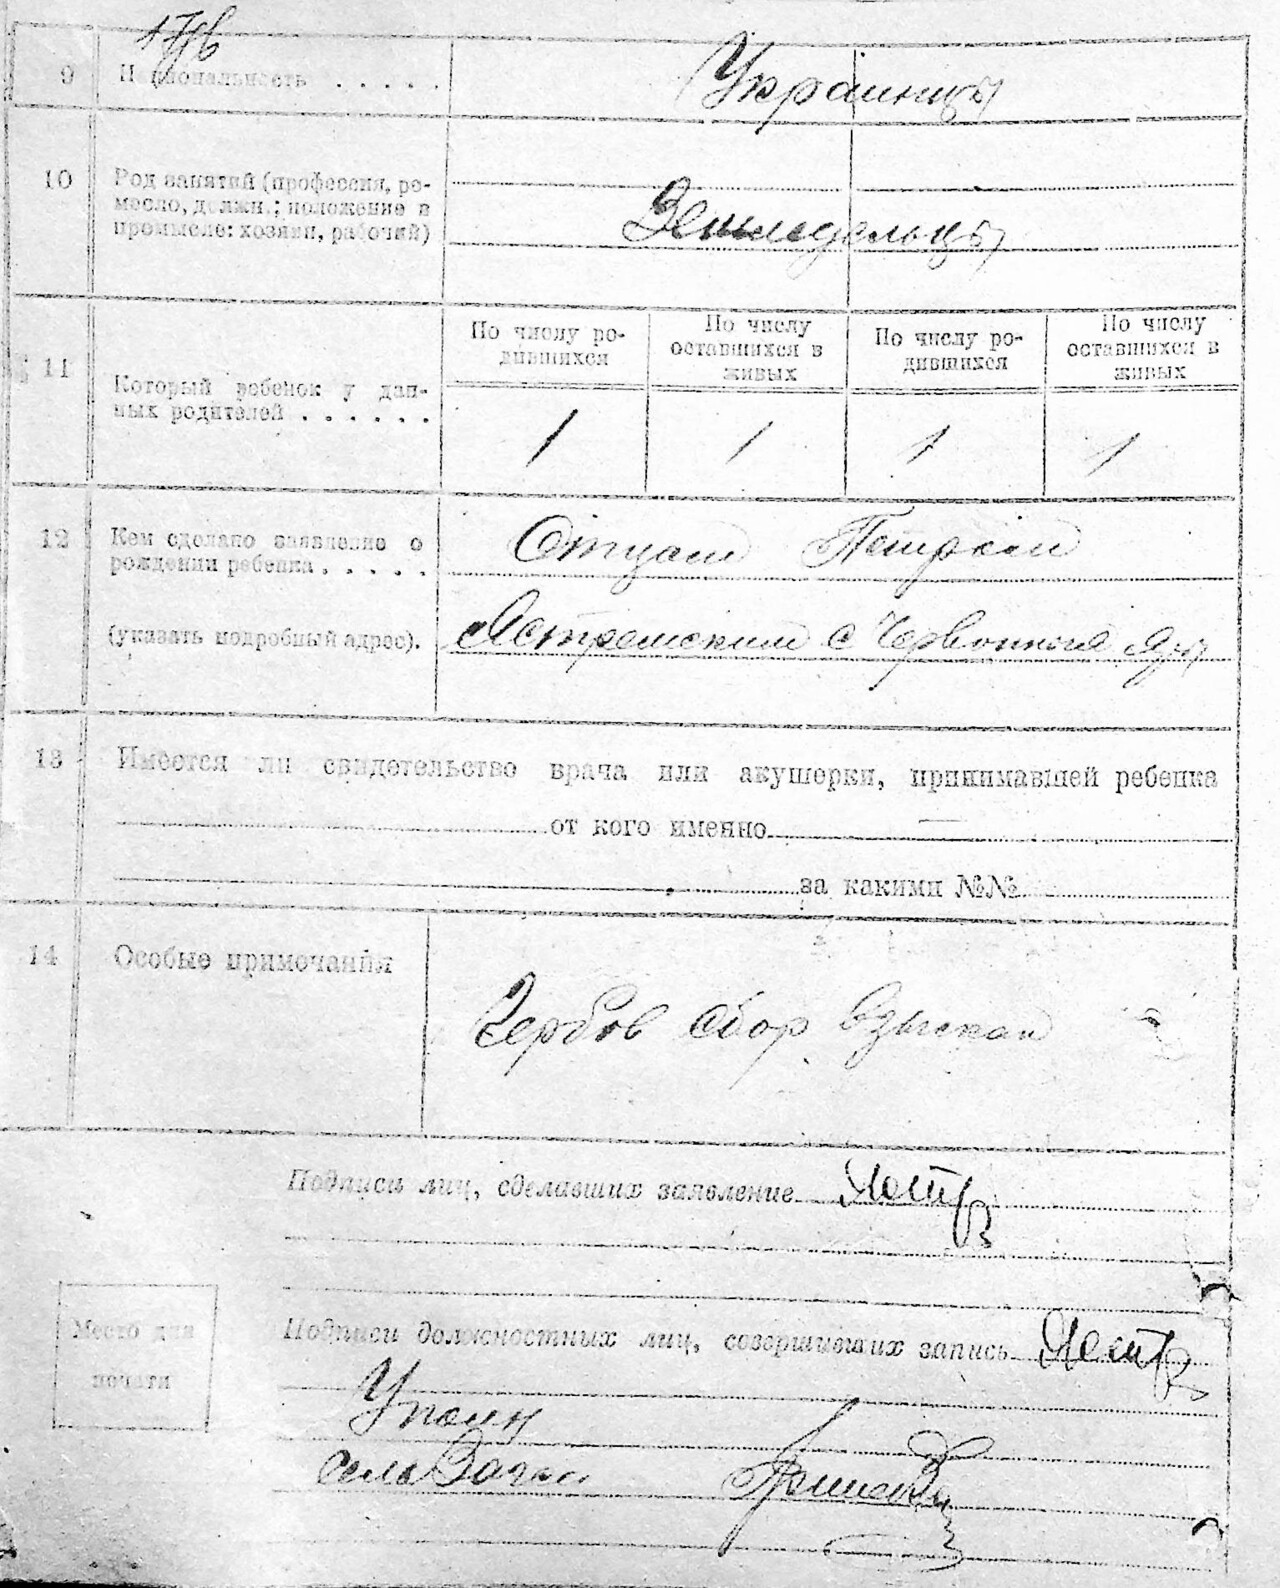 9 Национальность . . . . . Украинцы
10 Род занятий (профессия, ре-
месло, должн.; положение в
промысле: хозяин, рабочий)
Земледельцы
По числу ро-
дившихся
По числу
оставшихся в
живых
По числу ро-
дившихся
По числу
оставшихся в
живых
11 Который ребенок у дан-
ных родителей . . . . . .
1 1 1 1
12 Кем сделано заявление о
рождении ребенка . . . . .
Отцом Петром
(указать подробный адрес).
Ястремским с Червонный Яр
13 Имеется ли свидетельство врача или акушерки, принимавшей ребенка
от кого именно —
за какими №№
14 Особые примечания
Гербов сбор взыскан
Подписи лиц, сделавших заявление Ястр
Место для
печати
Подписи должностных лиц, совершивших запись Ястр